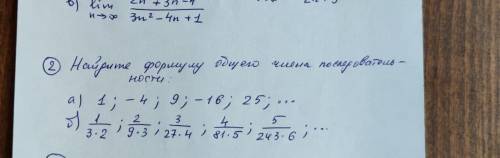 б) lim n→∞ 2n²+3n-4 / 3n²-4n+1
② Найдите формулу общего члена последователь-
ности:
а) 1; -4; 9; -16; 25; ...
б) 1/3·2; 2/9·3; 3/27·4; 4/81·5; 5/243·6; ...